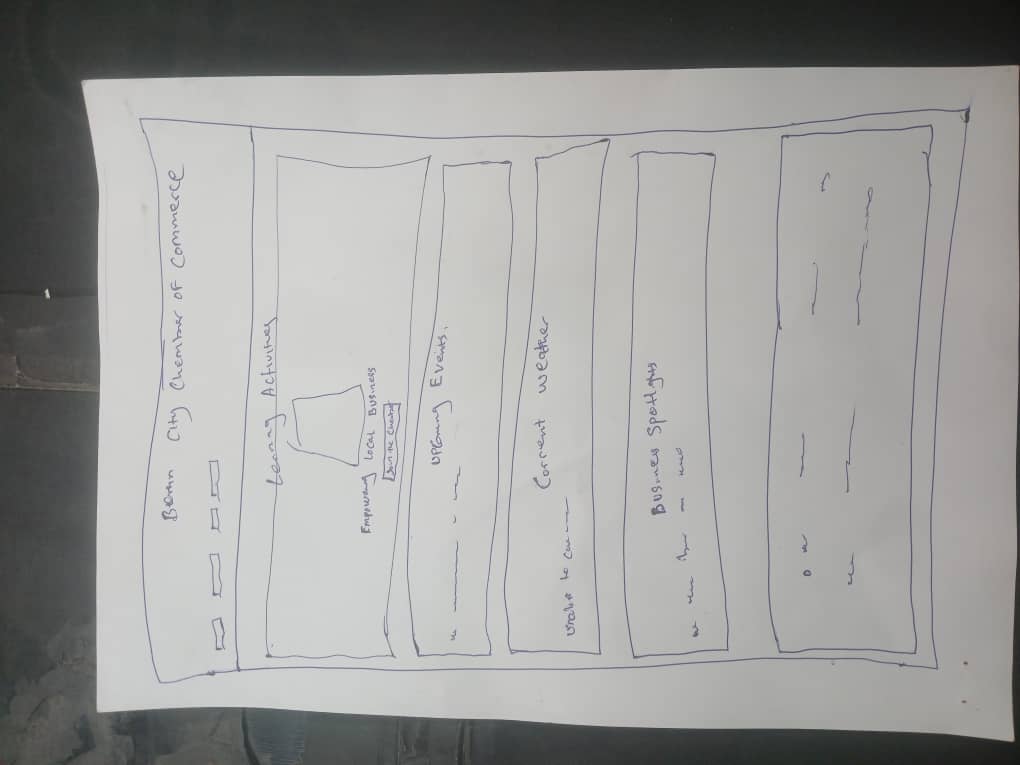 Benin City Chember of Commerce
Leaning Activities
Empowering Local Business
Join the Chamber
UPComing Events.
Current Weather
Unable to
Business Spotlights